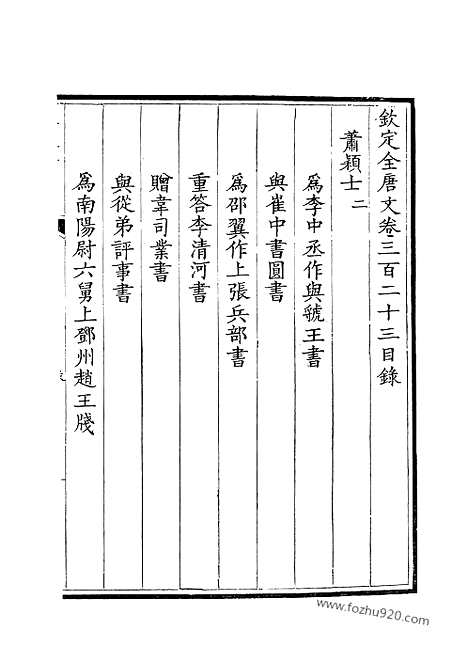 欽定全唐文卷三百二十三目錄
蕭穎士二
為李中丞作與虢王書
與崔中書圓書
為邵翼作上張兵部書
重答李清河書
贈韋司業書
與從弟評事書
為南陽尉六舅上鄧州趙王牋
www.fozhu920.com